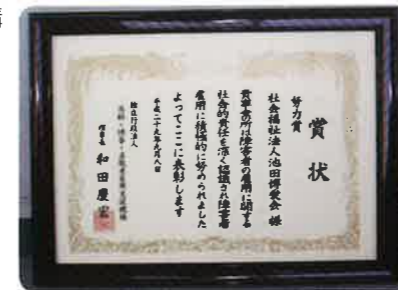 賞状
努力賞
社会福祉法人池田博愛会 様
貴事業所は障害者の雇用に関する
社会的責任を深く認識され障害者
雇用に積極的に努められました
よってここに表彰します
平成二十九年九月八日
独立行政法人
高齢・障害・求職者雇用支援機構
理事長 和田慶宏